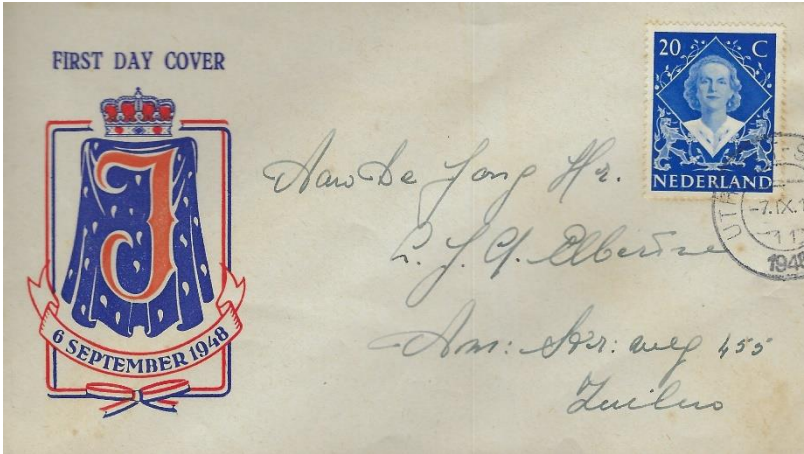 FIRST DAY COVER
J
6 SEPTEMBER 1948
20 C
NEDERLAND
UTR
-7.IX.1
1948
Aan De Jong Hr.
L. J. G.
Am: Str: weg 455
Zuilen